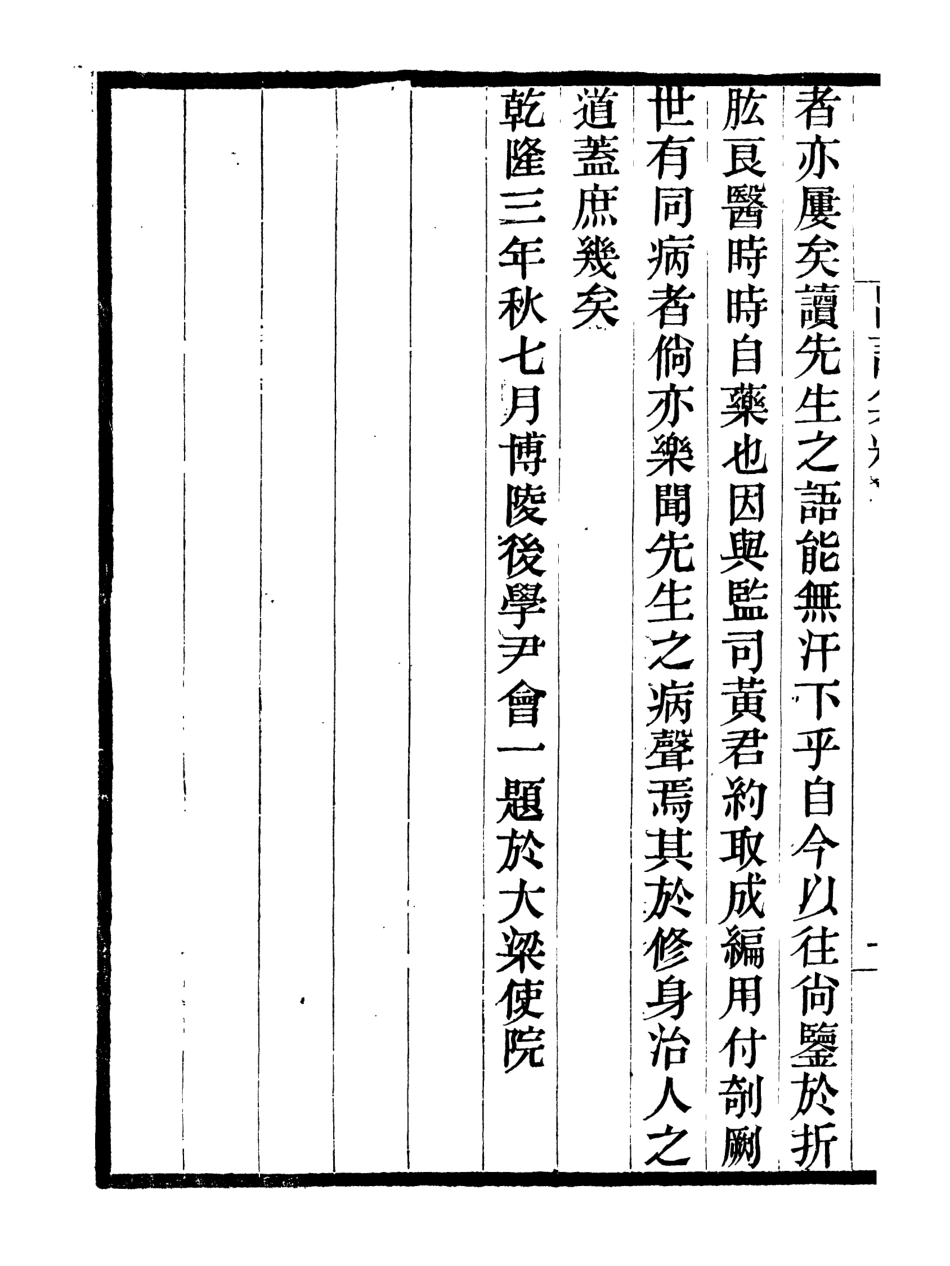 者亦屢矣讀先生之語能無汗下乎自今以往尚鑒於折
肱良醫時時自藥也因與監司黃君約取成編用付剞劂
世有同病者倘亦樂聞先生之病聲焉其於修身治人之
道蓋庶幾矣
乾隆三年秋七月博陵後學尹會一題於大梁使院